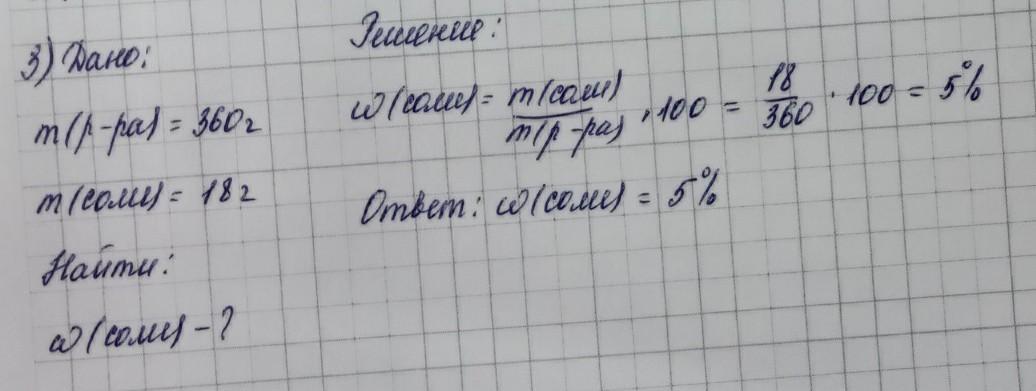 3) Дано:
m(р-ра) = 360г
m(соли) = 18г
Найти:
ω(соли) - ?
Решение:
ω(соли) = m(соли) / m(р-ра) · 100 = 18 / 360 · 100 = 5%
Ответ: ω(соли) = 5%